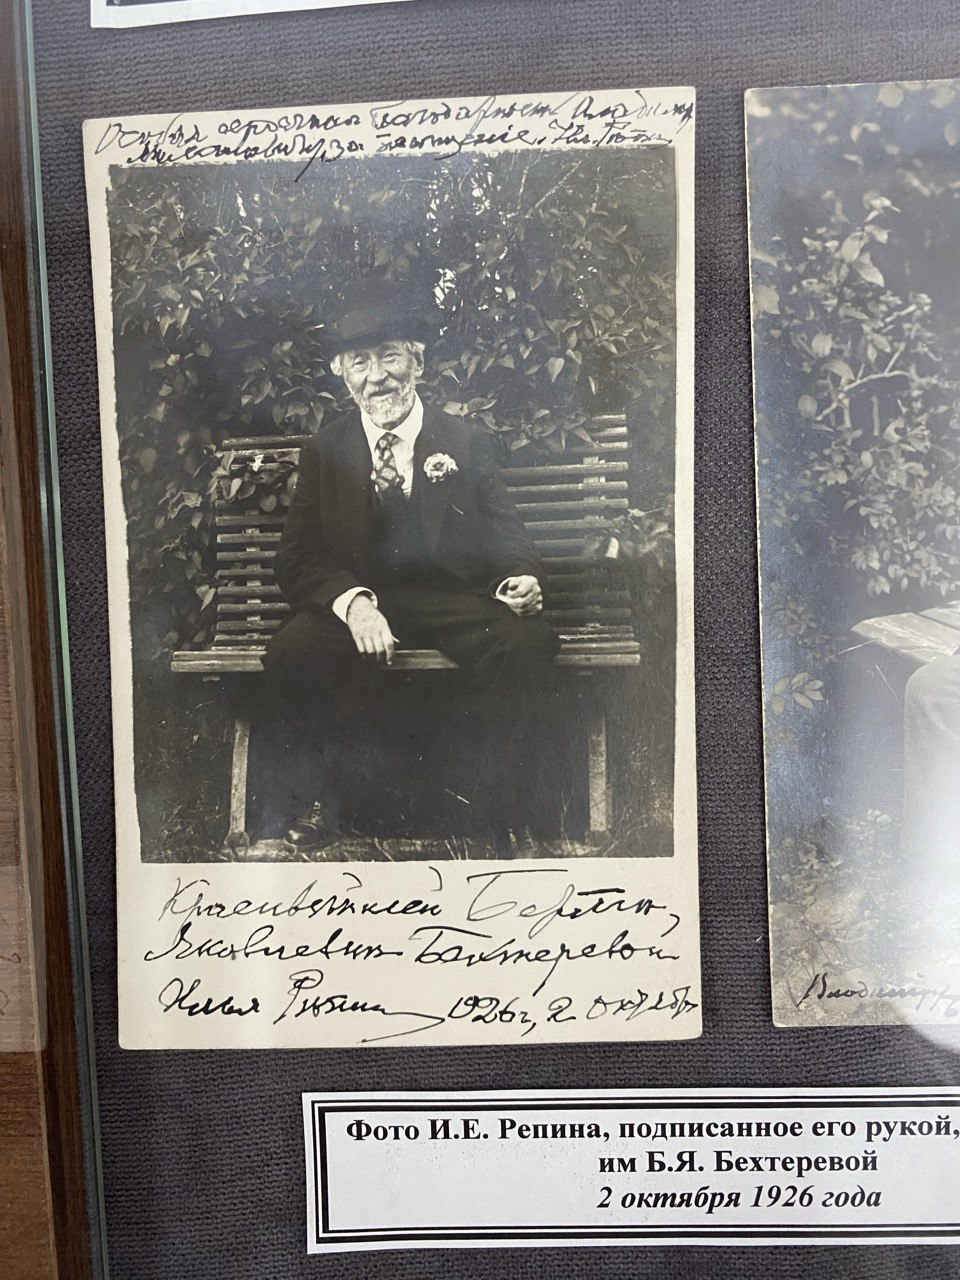 Особая сердечная благодарность Владимиру
Михайловичу, за посещение. Ил. Репин
Красивейшей Берте
Яковлевне Бехтеревой
Илья Репин 1926 г, 2 октября
Владимиру
Фото И.Е. Репина, подписанное его рукой,
им Б.Я. Бехтеревой
2 октября 1926 года